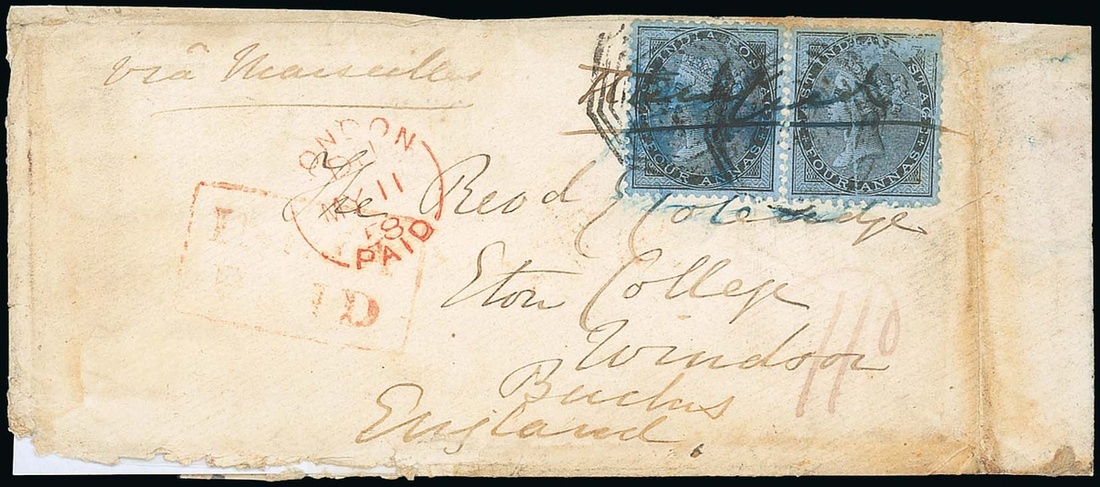 via Marseilles
EAST INDIA POSTAGE
FOUR ANNAS
EAST INDIA POSTAGE
FOUR ANNAS
LONDON
MY 11
58
PAID
The Revd E Coleridge
Eton College
Windsor
Bucks
England.
11d